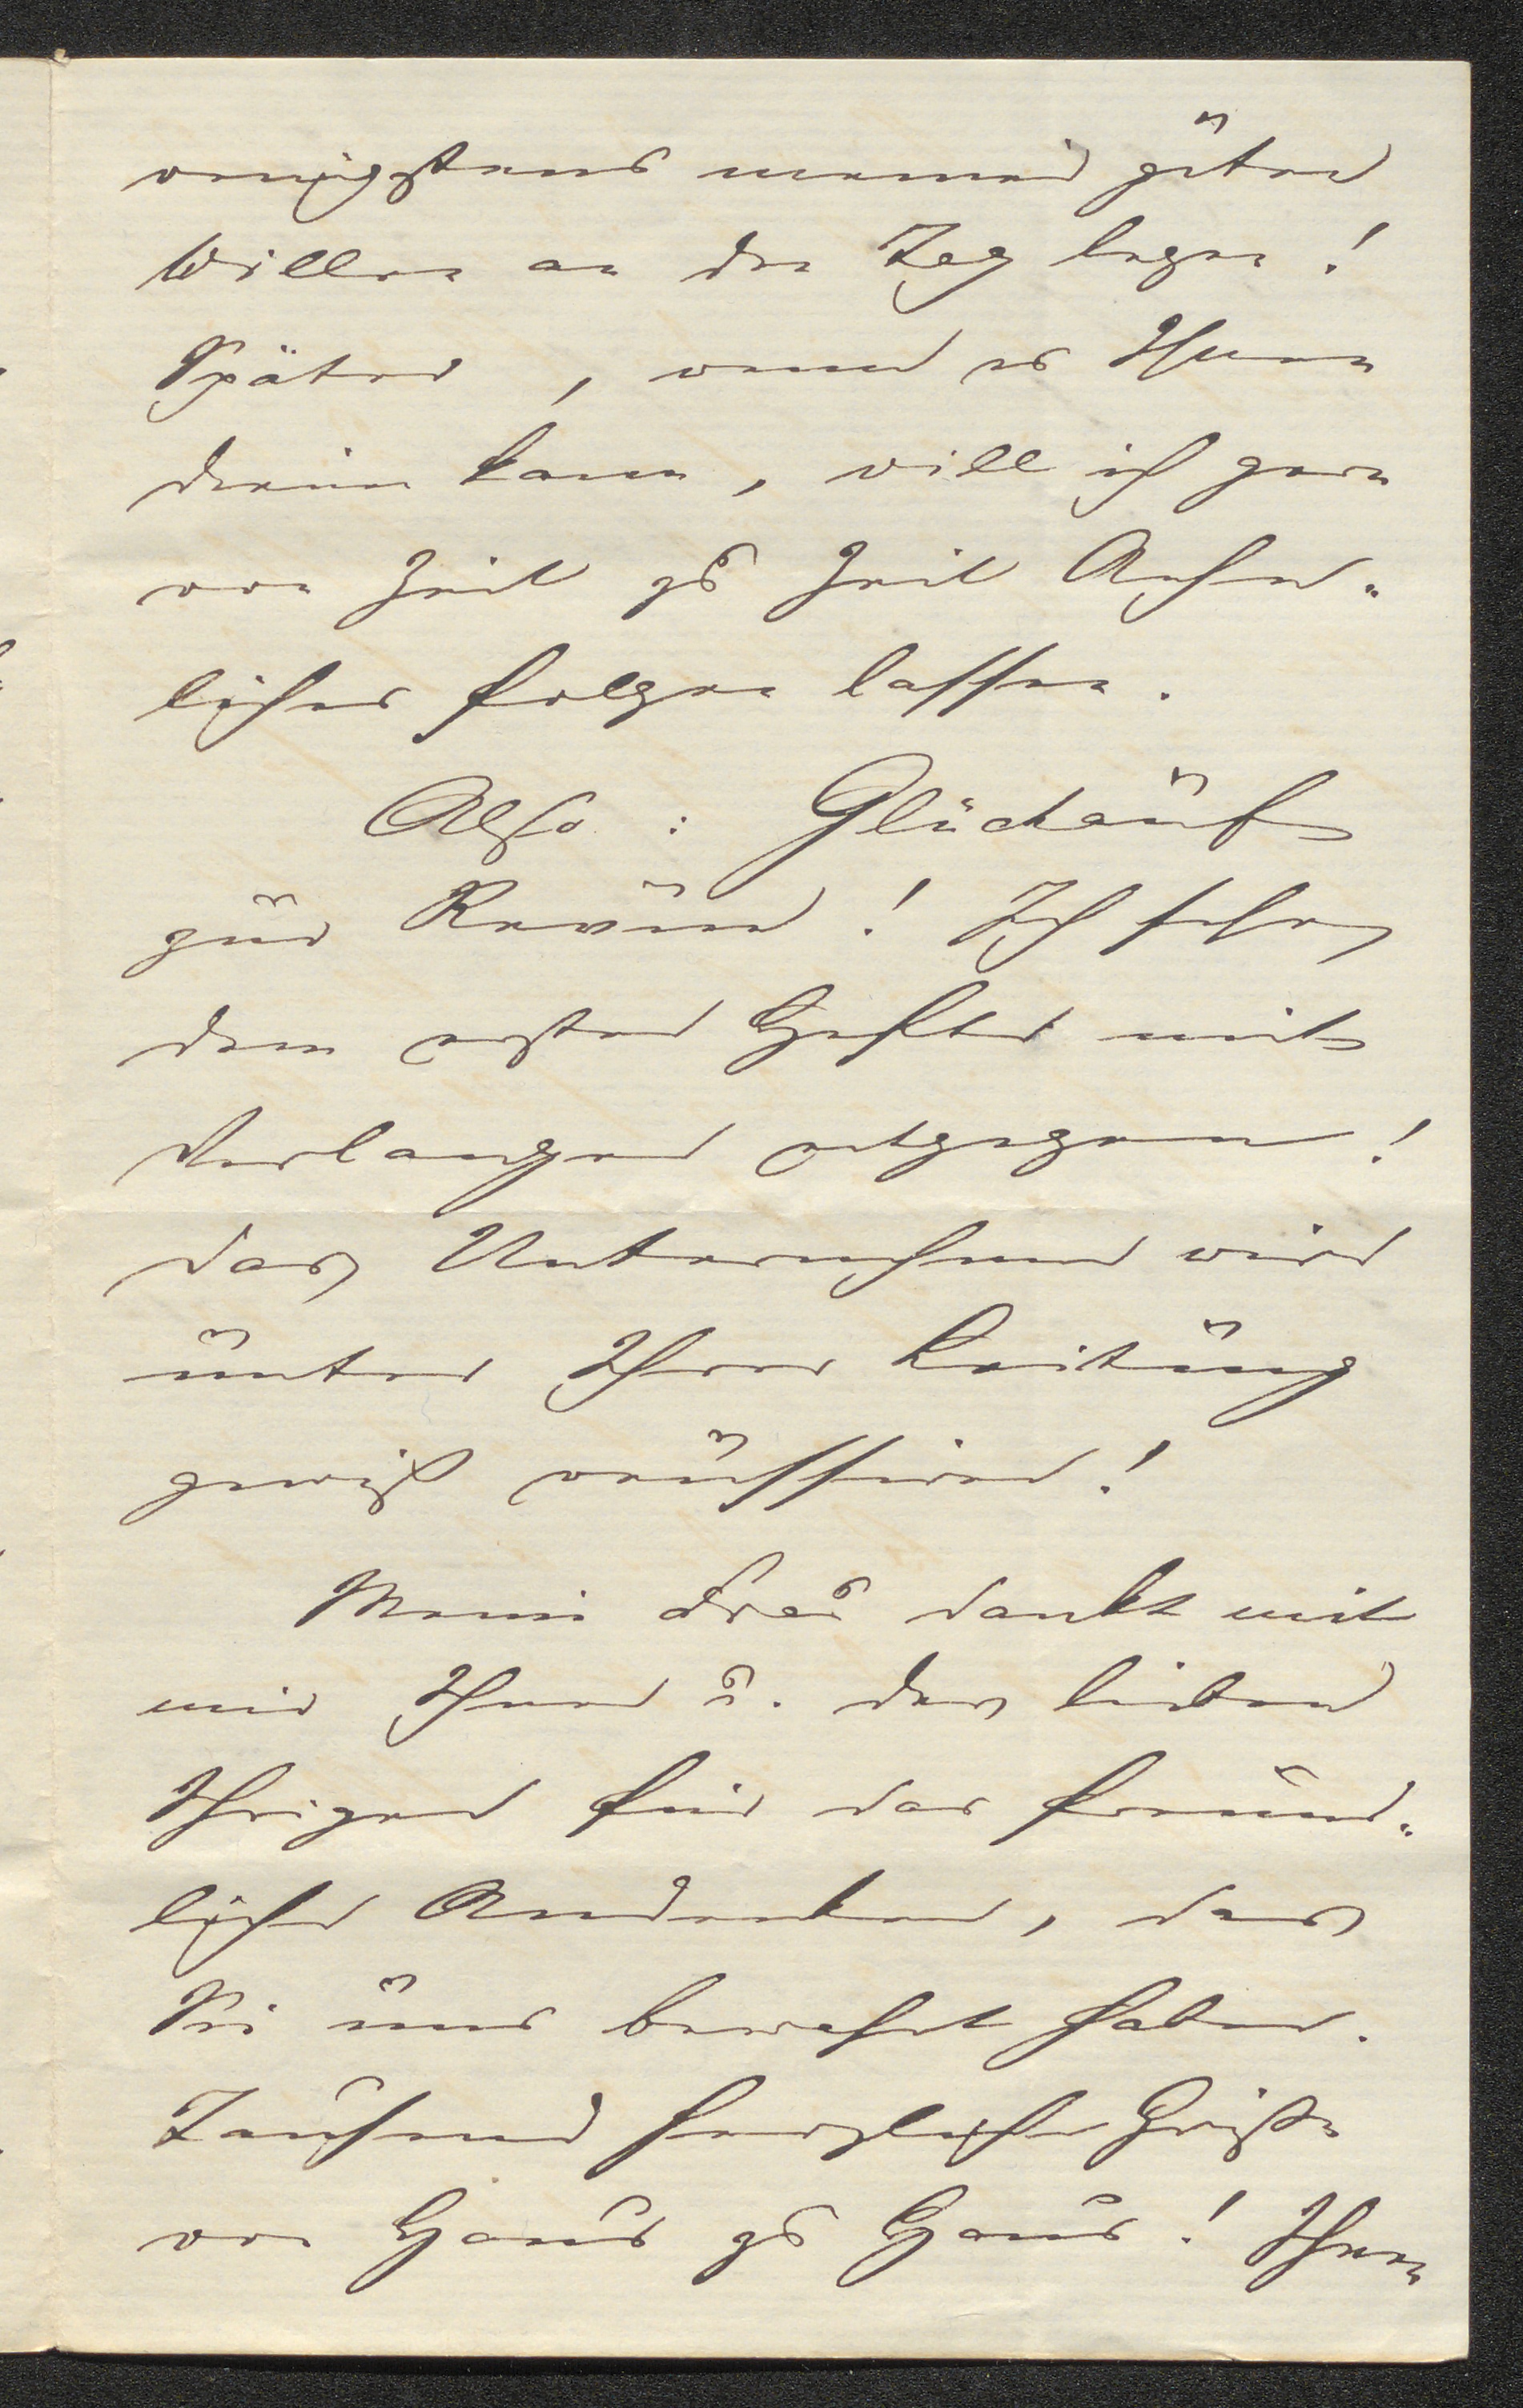 wenigstens meinen guten
Willen an den Tag legen!
Später, wenn es Ihnen
dienen kann, will ich gern
von Zeit zu Zeit Aehn-
liches folgen lassen.
Also: Glückauf
zur Revue! Ich sehe
dem ersten Hefte mit
Verlangen entgegen!
Das Unternehmen wird
unter Ihrer Leitung
gewiß reussiren!
Meine Frau dankt mit
mir Ihnen u. den lieben
Ihrigen für das freund-
liche Andenken, das
Sie uns bewahrt haben.
Tausend herzliche Grüße
von Haus zu Haus! Ihnen